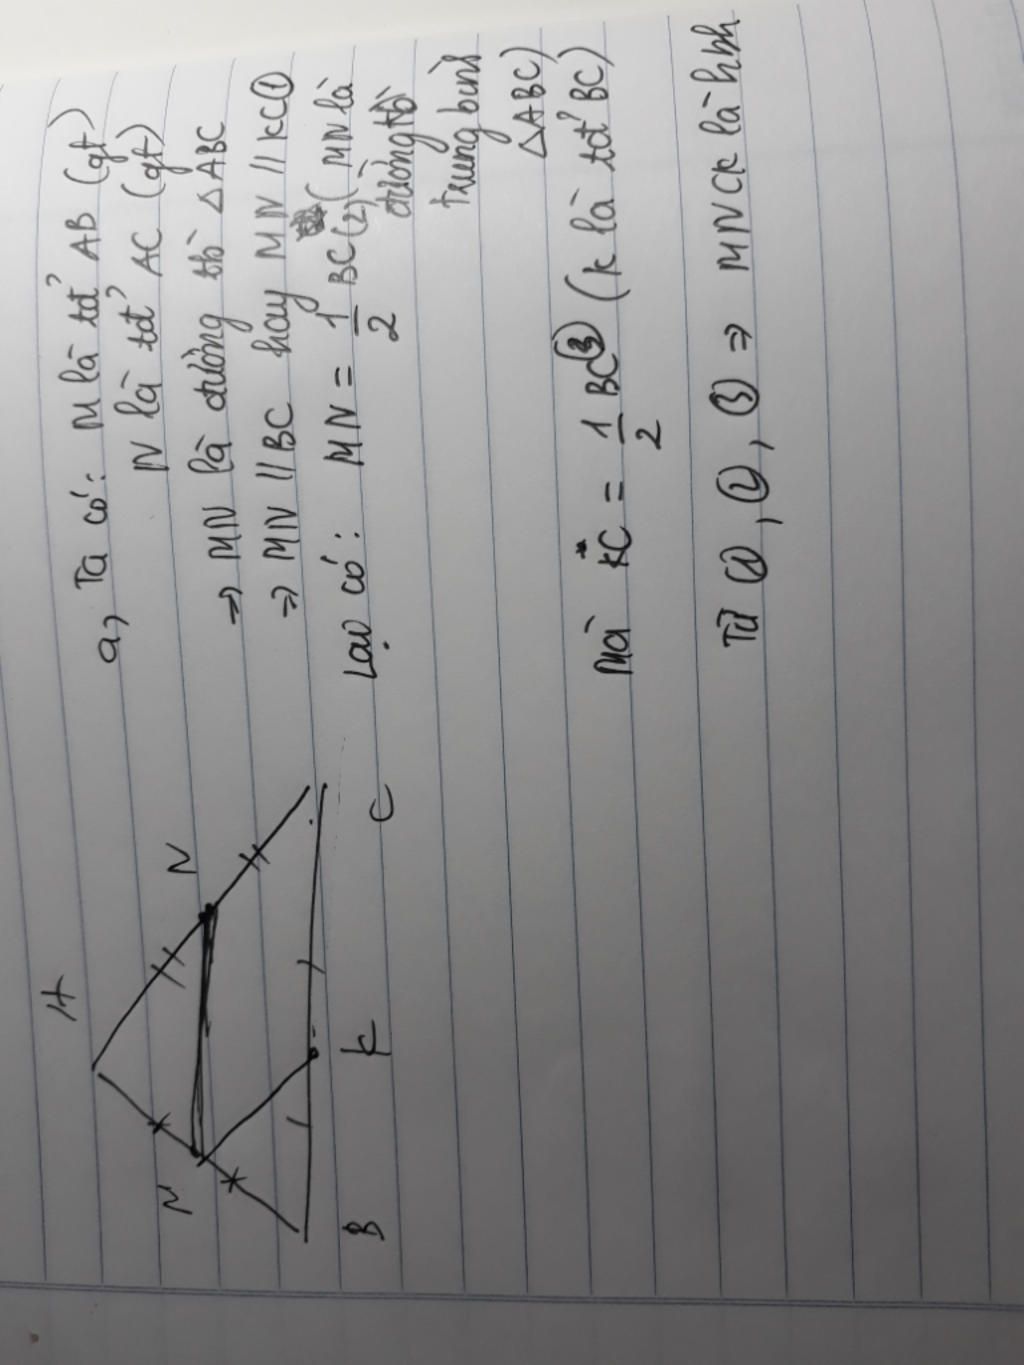 A
N
N
B
K
C
a, Ta có: M là tđ' AB (gt)
N là tđ' AC (gt)
⇒ MN là đường tb △ABC
⇒ MN // BC hay MN // KC ①
Lại có: MN = 1/2 BC (2) ( MN là
đường tb
trung bình
△ABC)
Mà KC = 1/2 BC ③ (K là tđ' BC)
Từ ①, ②, ③ ⇒ MNCK là hbh